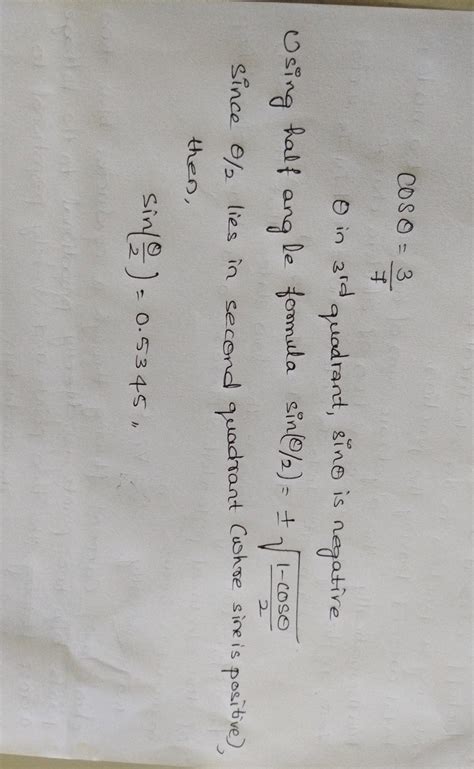 cosθ = 3/7
θ in 3rd quadrant, sinθ is negative
Using half angle formula sin(θ/2) = ± √(1-cosθ/2)
since θ/2 lies in second quadrant (whose sine is positive),
then,
sin(θ/2) = 0.5345,,